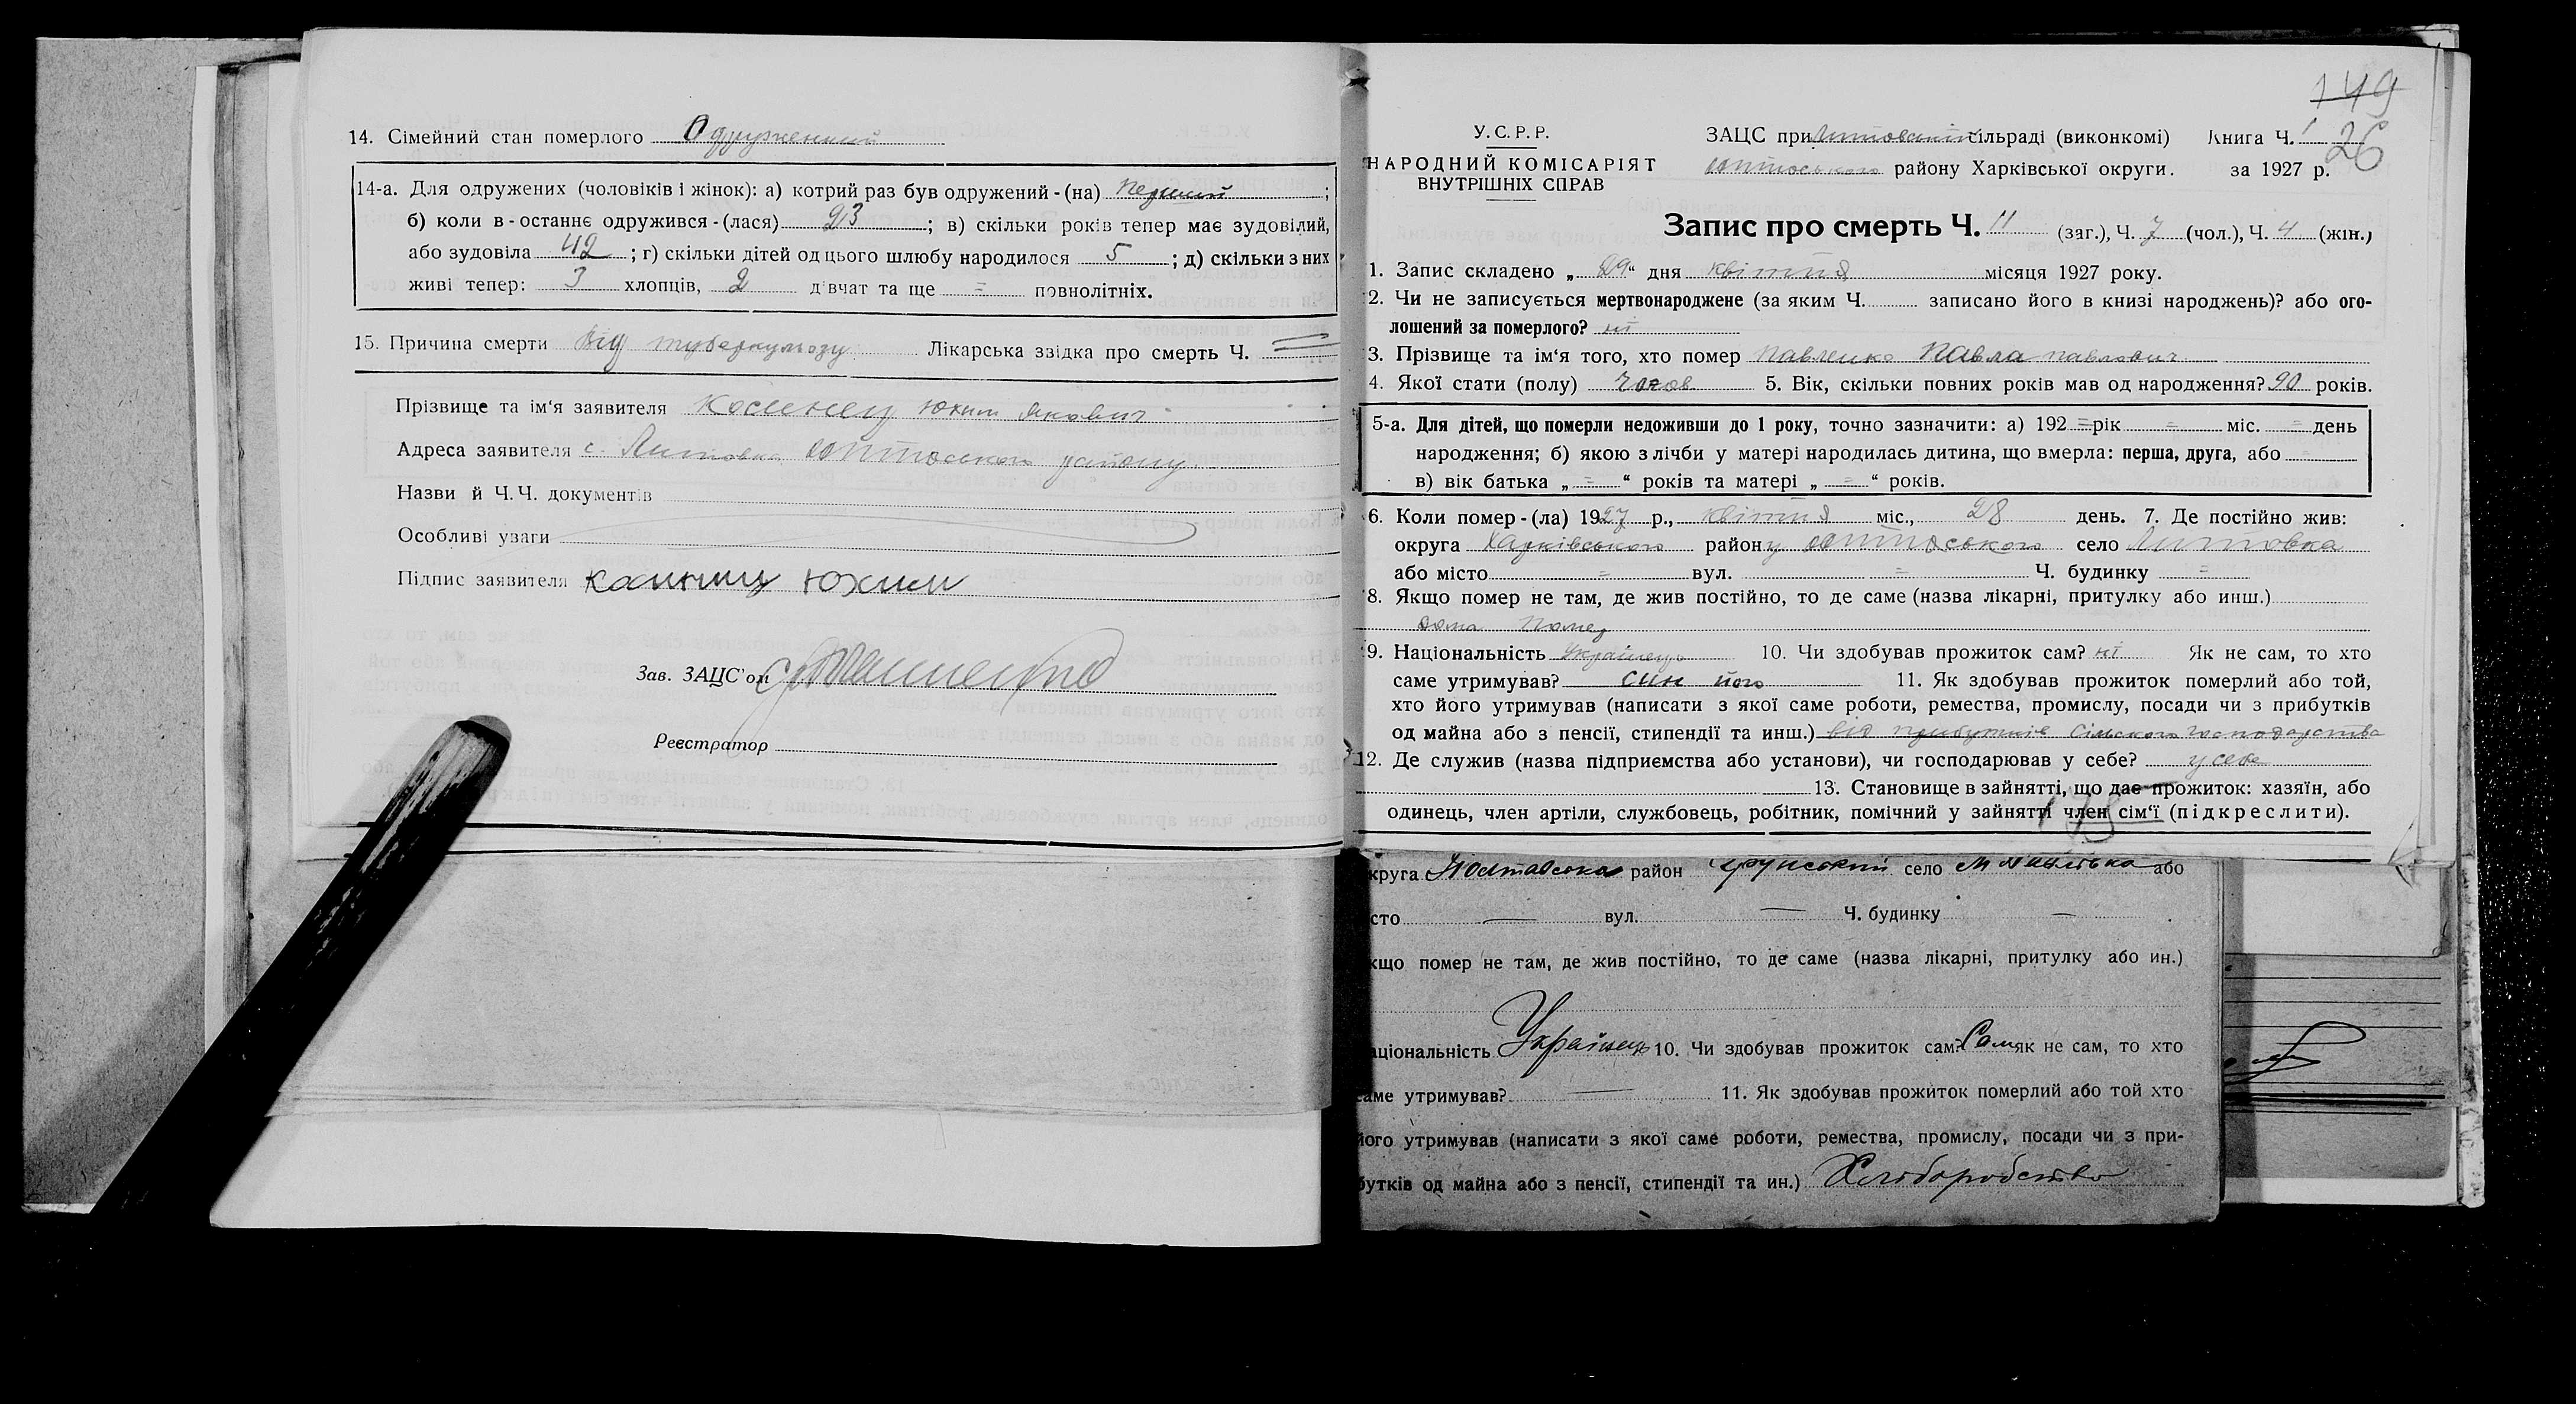 14. Сімейний стан померлого Одружений
14-а. Для одружених (чоловіків і жінок): а) котрий раз був одружений - (на) перший ;
б) коли в - останнє одружився - (лася) 913 ; в) скільки років тепер має зудовілий,
або зудовіла 42 ; г) скільки дітей од цього шлюбу народилося 5 ; д) скільки з них
живі тепер: 3 хлопців, 2 дівчат та ще = повнолітніх.
15. Причина смерти від туберкульозу Лікарська звідка про смерть Ч. =
Прізвище та ім'я заявителя Косинец Юхим Якович
Адреса заявителя с. Литовка району
Назви й Ч.Ч. документів
Особливі уваги
Підпис заявителя Юхим
Зав. ЗАЦС'ом
Реєстратор
149
26
У.С.Р.Р.
НАРОДНИЙ КОМІСАРІЯТ
ВНУТРІШНІХ СПРАВ
ЗАЦС при Литовській сільраді (виконкомі) Книга Ч. 1
району Харківської округи. за 1927 р.
Запис про смерть Ч. 11 (заг.), Ч. 7 (чол.), Ч. 4 (жін.)
1. Запис складено „ 29 “ дня квітня місяця 1927 року.
2. Чи не записується мертвонароджене (за яким Ч. записано його в книзі народжень)? або ого-
лошений за померлого? ні
3. Прізвище та ім'я того, хто помер Павленко Павла Павлович
4. Якої стати (полу) 5. Вік, скільки повних років мав од народження? 90 років.
5-а. Для дітей, що померли недоживши до 1 року, точно зазначити: а) 192 = рік = міс. = день
народження; б) якою з лічби у матері народилась дитина, що вмерла: перша, друга, або
в) вік батька „ = “ років та матері „ = “ років.
6. Коли помер - (ла) 1927 р., квітня міс., 28 день. 7. Де постійно жив:
округа Харківського району село Литовка
або місто = вул. = Ч. будинку =
8. Якщо помер не там, де жив постійно, то де саме (назва лікарні, притулку або инш.)
дома помер
9. Національність Українець 10. Чи здобував прожиток сам? ні Як не сам, то хто
саме утримував? син його 11. Як здобував прожиток померлий або той,
хто його утримував (написати з якої саме роботи, ремества, промислу, посади чи з прибутків
од майна або з пенсії, стипендії та инш.) від прибутків сільського господарства
12. Де служив (назва підприємства або установи), чи господарював у себе? у себе
13. Становище в зайнятті, що дає прожиток: хазяїн, або
одинець, член артіли, службовець, робітник, помічний у зайнятті член сім'ї (підкреслити).
круга Полтавська район село або
сто — вул. — Ч. будинку —
кщо помер не там, де жив постійно, то де саме (назва лікарні, притулку або ин.)
аціональність Українець 10. Чи здобував прожиток сам? Сам як не сам, то хто
аме утримував? — 11. Як здобував прожиток померлий або той хто
його утримував (написати з якої саме роботи, ремества, промислу, посади чи з при-
бутків од майна або з пенсії, стипендії та ин.) Хліборобство